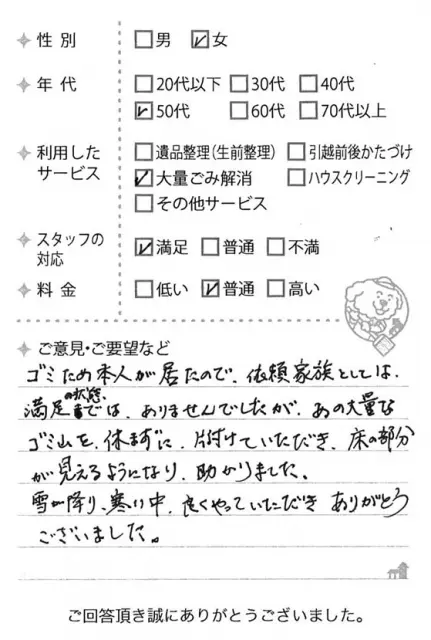 性別 □男 ☑女
年代 □20代以下 □30代 □40代
☑50代 □60代 □70代以上
利用したサービス □遺品整理(生前整理) □引越前後かたづけ
☑大量ごみ解消 □ハウスクリーニング
□その他サービス
スタッフの対応 ☑満足 □普通 □不満
料金 □低い ☑普通 □高い
ご意見・ご要望など
ゴミため本人が居たので、依頼家族としては、
満足の状態までは、ありませんでしたが、あの大量な
ゴミ山を、休まずに、片付けていただき、床の部分
が見えるようになり、助かりました。
雪が降り、寒い中、良くやっていただき ありがとう
ございました。
ご回答頂き誠にありがとうございました。